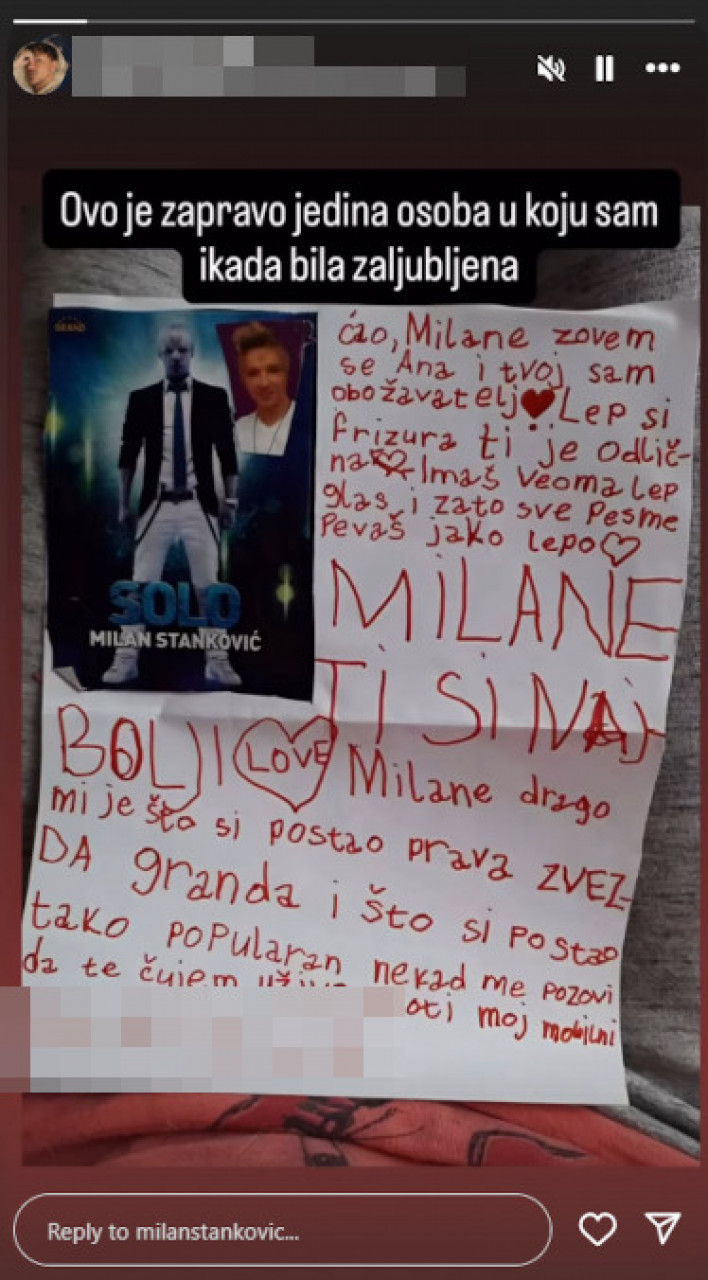 Ovo je zapravo jedina osoba u koju sam
ikada bila zaljubljena
GRAND
SOLO
MILAN STANKOVIĆ
ćao, Milane zovem
se Ana i tvoj sam
obožavatelj Lep si
frizura ti je odlič-
na Imaš veoma lep
glas i zato sve Pesme
Pevaš jako lepo
MILANE
Ti Si NAj
BOLJI LOVE Milane drago
mi je što si postao prava ZVEZ-
DA granda i što si postao
tako popularan nekad me pozovi
da te čujem
oti moj mobilni
Reply to milanstankovic...